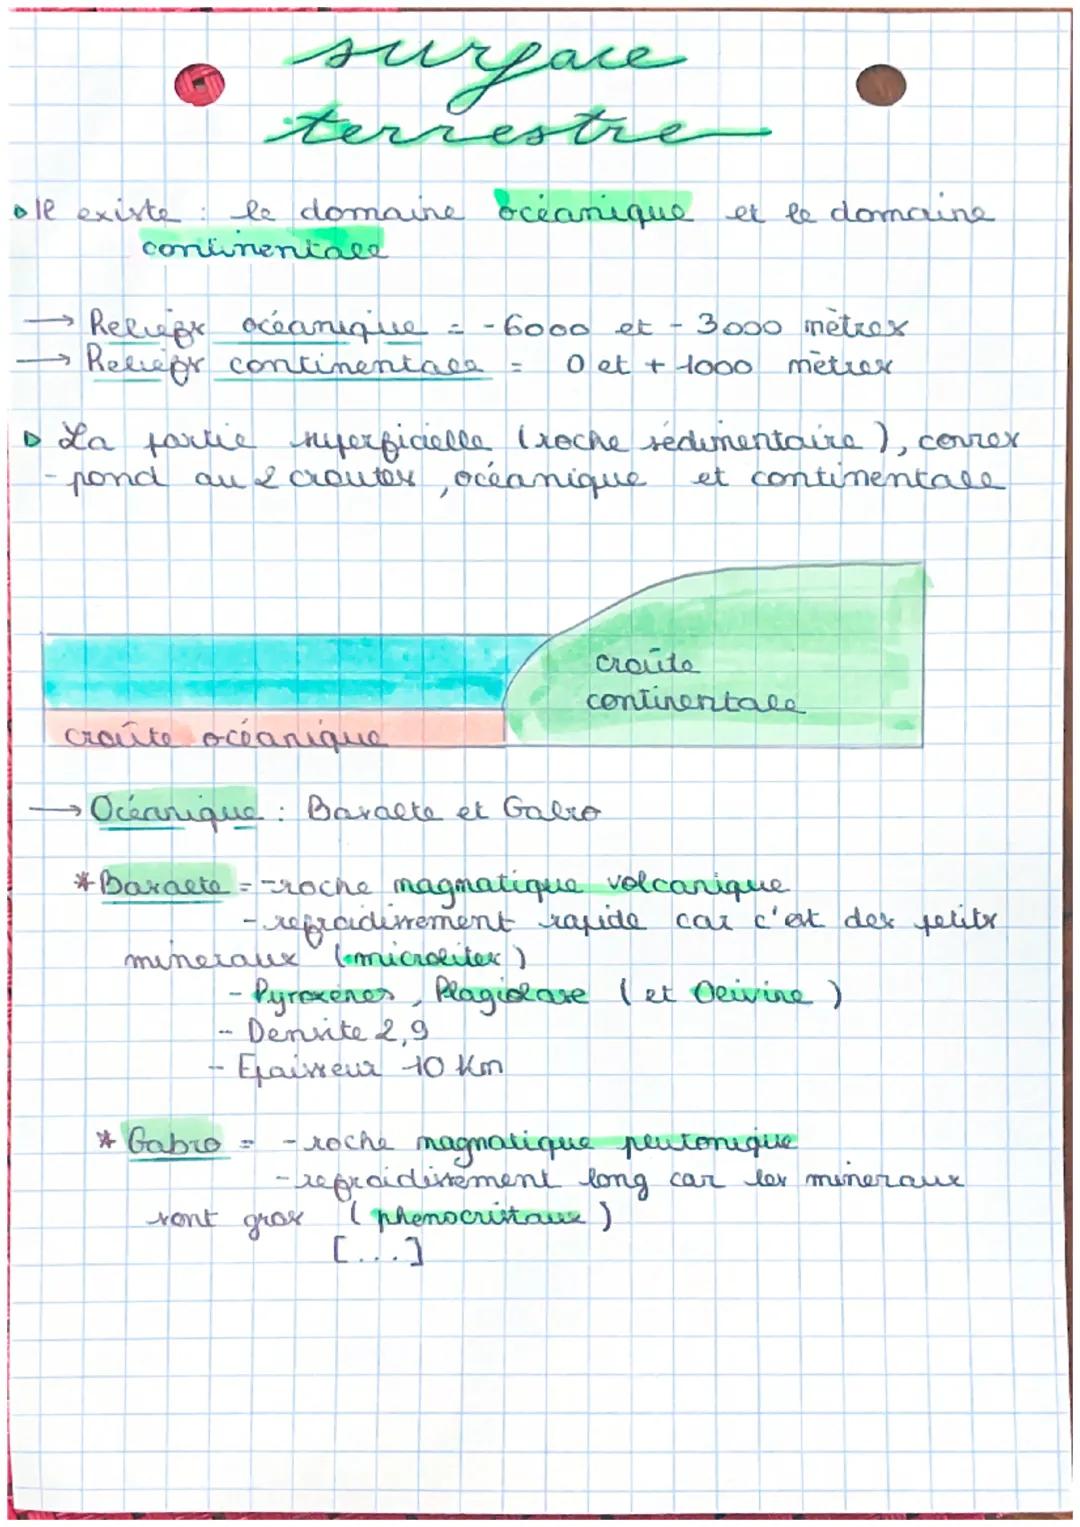 surface
terrestre
Il existe : le domaine océanique et le domaine
continentale
→ Reliefs océanique = -6000 et -3000 mètres
→ Reliefs continentale = 0 et +1000 mètres
La partie superficielle (roche sédimentaire), corres
-pond au 2 croutes, océanique et continentale
croûte
continentale
croûte océanique
→ Océanique : Basalte et Gabro
* Basalte = -roche magmatique volcanique
-refroidissement rapide car c'est des petits
mineraux (microlites)
- Pyroxenes, Plagiolase (et Olivine)
- Densite 2,9
- Epaisseur 10 Km
* Gabro = -roche magmatique plutonique
-refroidissement long car les mineraux
sont gros (phenocristaux)
[...]